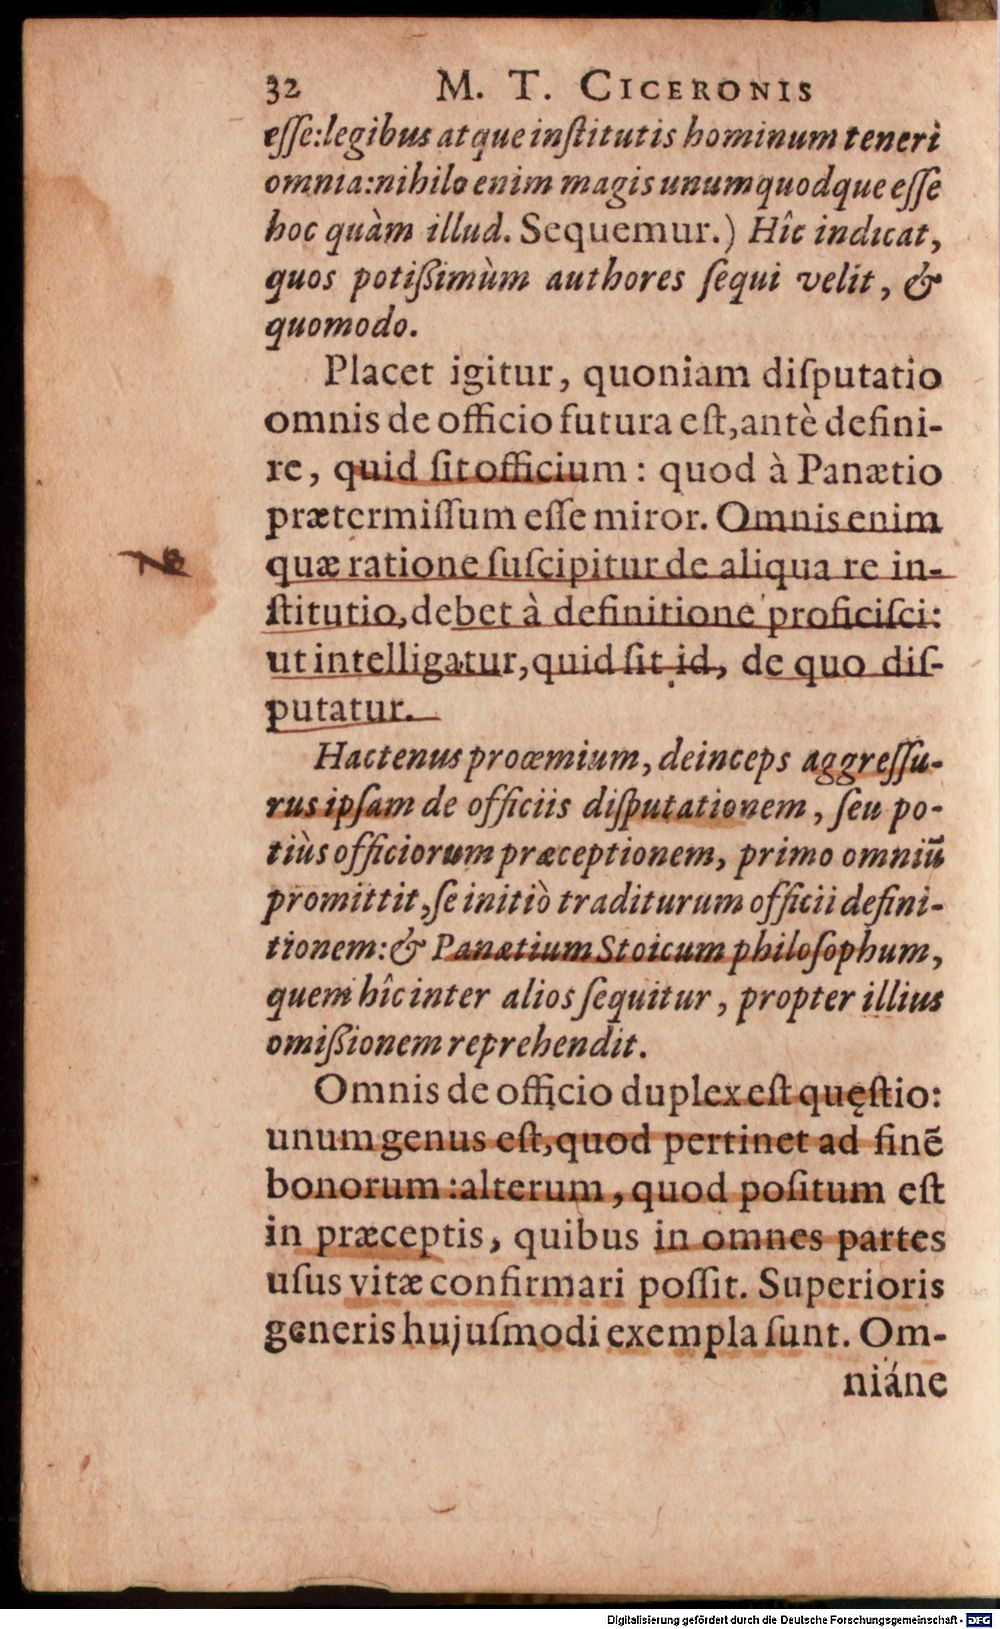 32 M. T. CICERONIS
eſſe: legibus atque inſtitutis hominum teneri
omnia: nihilo enim magis unumquodque eſſe
hoc quàm illud. Sequemur.) Hîc indicat,
quos potißimùm authores ſequi velit, &
quomodo.
Placet igitur, quoniam diſputatio
omnis de officio futura eſt, antè defini-
re, quid ſit officium: quod à Panætio
prætermiſſum eſſe miror. Omnis enim
quæ ratione ſuſcipitur de aliqua re in-
ſtitutio, debet à definitione proficiſci:
ut intelligatur, quid ſit id, de quo diſ-
putatur.
Hactenus proœmium, deinceps aggreſſu-
rus ipſam de officiis diſputationem, ſeu po-
tiùs officiorum præceptionem, primo omniũ
promittit, ſe initiò traditurum officii defini-
tionem: & Panætium Stoicum philoſophum,
quem hîc inter alios ſequitur, propter illius
omißionem reprehendit.
Omnis de officio duplex eſt quęſtio:
unum genus eſt, quod pertinet ad finẽ
bonorum: alterum, quod poſitum eſt
in præceptis, quibus in omnes partes
uſus vitæ confirmari poſſit. Superioris
generis hujuſmodi exempla ſunt. Om-
niáne
Digitalisierung gefördert durch die Deutsche Forschungsgemeinschaft - DFG